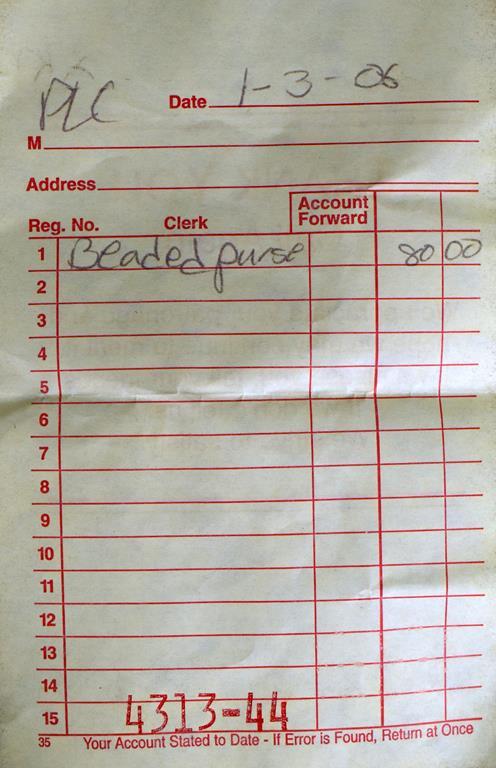 PLC
Date 1-3-06
M
Address
Reg. No. Clerk Account Forward
1 Beaded purse 80 00
2
3
4
5
6
7
8
9
10
11
12
13
14
15 4313-44
35 Your Account Stated to Date - If Error is Found, Return at Once